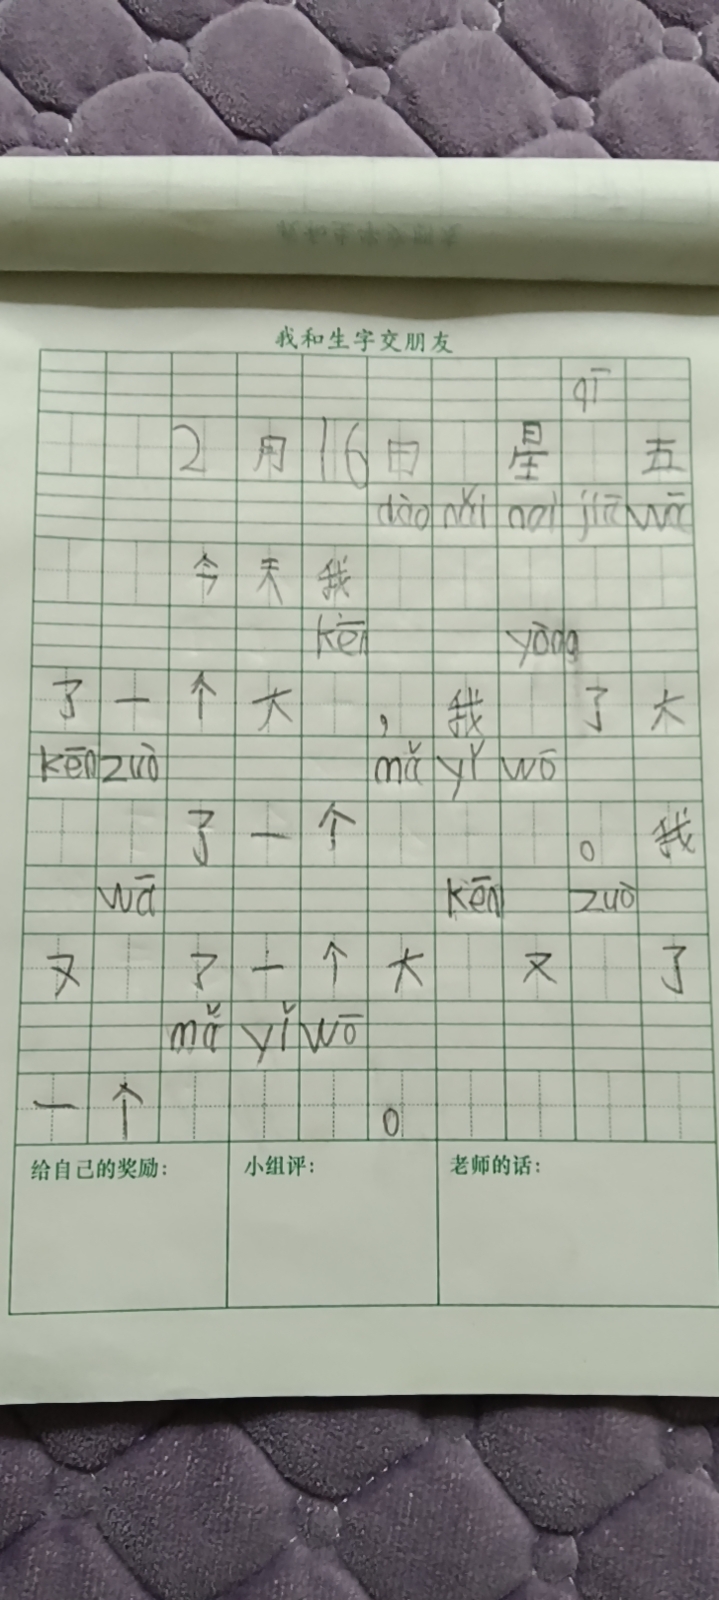 我和生字交朋友
qī
2月16日 星 五
dào nǎi nai jiā wā
今天我
kēn yòng
了一个大 ，我 了大
kēn zuò mǎ yǐ wō
了一个 。我
wā kēn zuò
又 了一个大 又 了
mǎ yǐ wō
一个 。
给自己的奖励： 小组评： 老师的话：